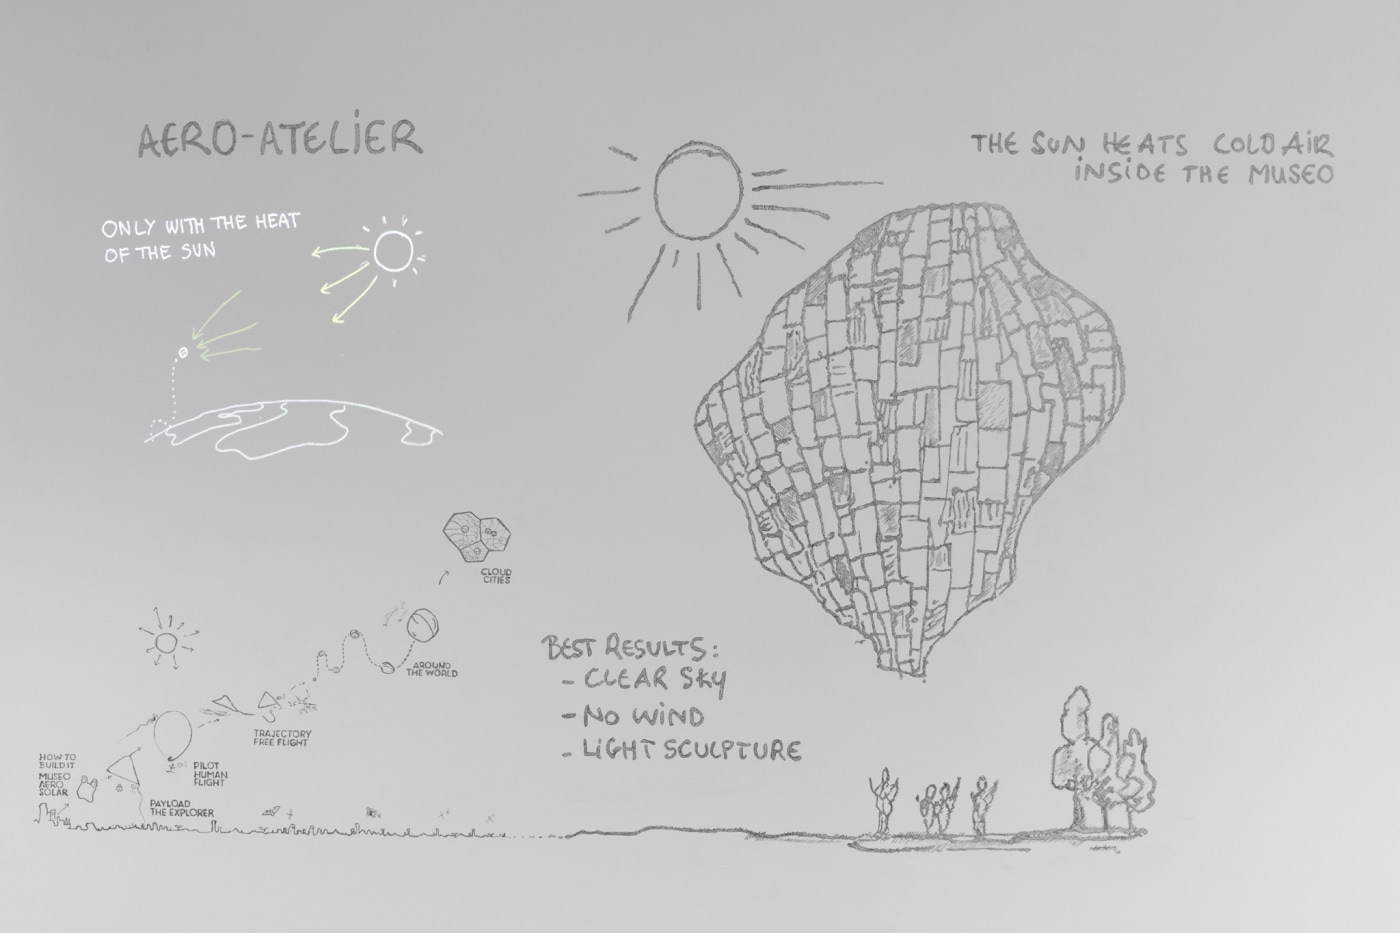 AERO-ATELIER
ONLY WITH THE HEAT
OF THE SUN
THE SUN HEATS COLD AIR
INSIDE THE MUSEO
CLOUD
CITIES
AROUND
THE WORLD
TRAJECTORY
FREE FLIGHT
PILOT
HUMAN
FLIGHT
HOW TO
BUILD IT
MUSEO
AERO
SOLAR
PAYLOAD
THE EXPLORER
BEST RESULTS:
- CLEAR SKY
- NO WIND
- LIGHT SCULPTURE